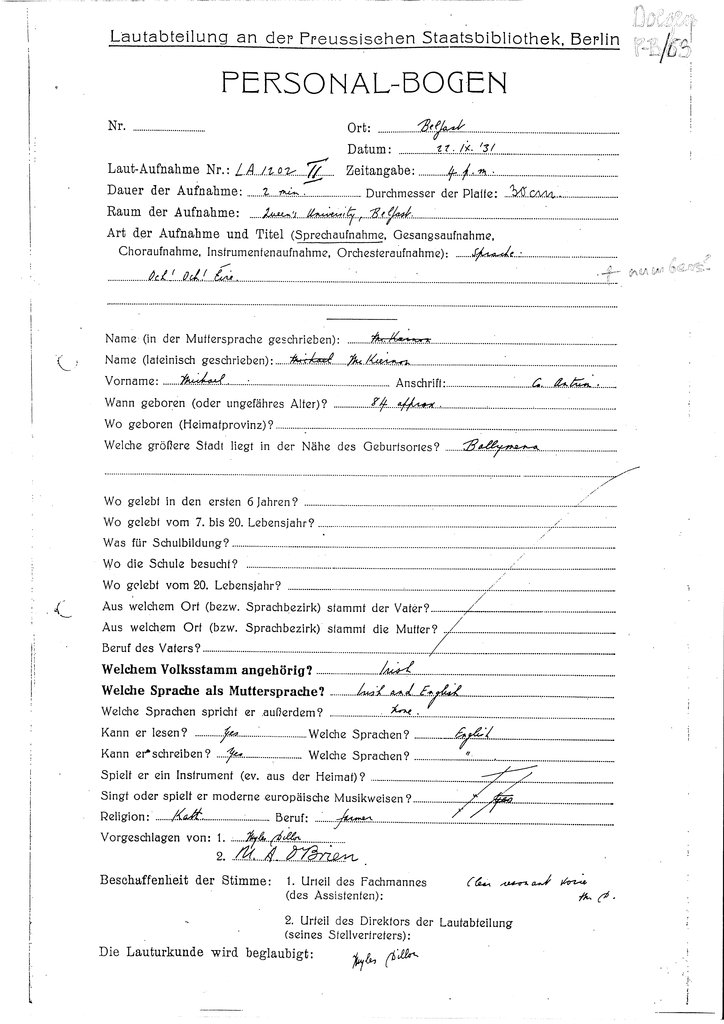 Lautabteilung an der Preussischen Staatsbibliothek, Berlin
PERSONAL-BOGEN
Nr.
Ort: Belfast
Datum: 22.IX.'31
Laut-Aufnahme Nr.: LA 1202 II Zeitangabe: 4 p.m.
Dauer der Aufnahme: 2 min. Durchmesser der Platte: 30 cm.
Raum der Aufnahme: Queen's University, Belfast.
Art der Aufnahme und Titel (Sprechaufnahme, Gesangsaufnahme,
Choraufnahme, Instrumentenaufnahme, Orchesteraufnahme): Sprache.
Och! Och! Éire. + numbers?
Name (in der Muttersprache geschrieben):
Name (lateinisch geschrieben): Michael McKiernon
Vorname: Michael. Anschrift: Co. Antrim.
Wann geboren (oder ungefähres Alter)? 84 approx.
Wo geboren (Heimatprovinz)?
Welche größere Stadt liegt in der Nähe des Geburtsortes? Ballymena
Wo gelebt in den ersten 6 Jahren?
Wo gelebt vom 7. bis 20. Lebensjahr?
Was für Schulbildung?
Wo die Schule besucht?
Wo gelebt vom 20. Lebensjahr?
Aus welchem Ort (bezw. Sprachbezirk) stammt der Vater?
Aus welchem Ort (bzw. Sprachbezirk) stammt die Mutter?
Beruf des Vaters?
Welchem Volksstamm angehörig? Irish
Welche Sprache als Muttersprache? Irish and English
Welche Sprachen spricht er außerdem? none.
Kann er lesen? Yes Welche Sprachen? English
Kann er schreiben? Yes Welche Sprachen? "
Spielt er ein Instrument (ev. aus der Heimat)?
Singt oder spielt er moderne europäische Musikweisen?
Religion: Kath. Beruf: farmer
Vorgeschlagen von: 1. Myles Dillon
2. M. A. O'Brien.
Beschaffenheit der Stimme: 1. Urteil des Fachmannes Clear resonant voice
(des Assistenten):
2. Urteil des Direktors der Lautabteilung
(seines Stellvertreters):
Die Lauturkunde wird beglaubigt: Myles Dillon